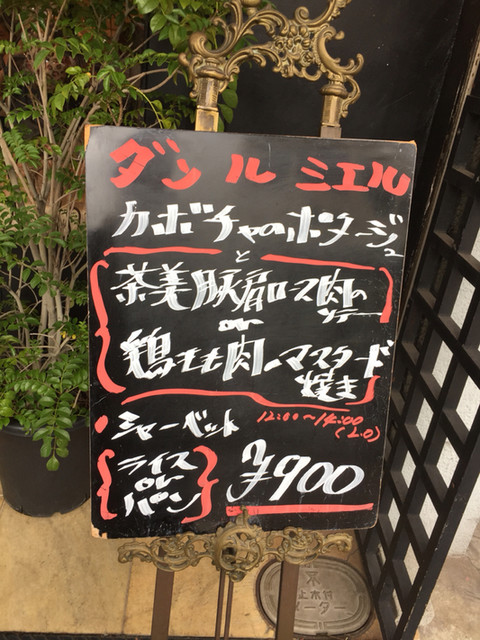 ダン ル ミエル
カボチャのポタージュ
と
茶美豚肩ロース肉の
ソテー
or
鶏もも肉のマスタード
焼き
・シャーベット
12:00〜14:00
(L.O)
ライス
or
パン
¥900
止水栓
メーター